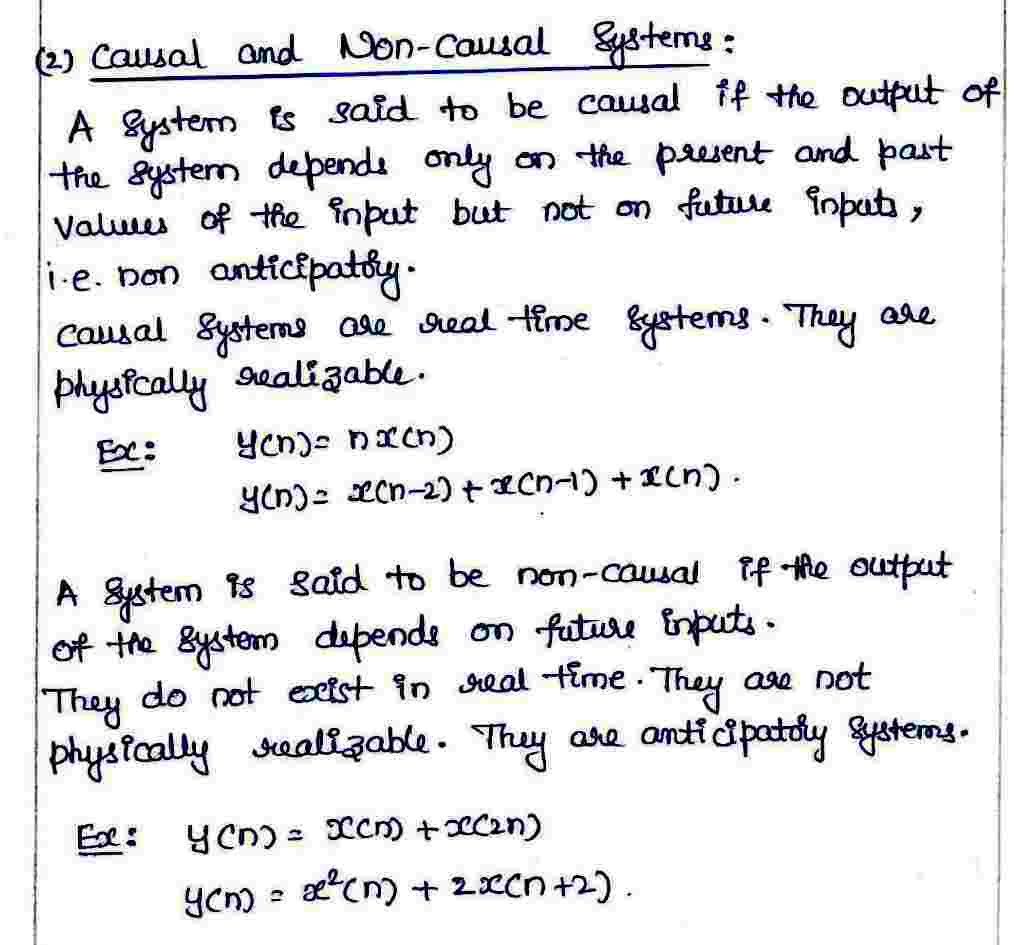 (2) Causal and Non-Causal Systems:
A System is said to be causal if the output of
the system depends only on the present and past
Values of the input but not on future inputs,
i.e. non anticipatory.
Causal Systems are real time systems. They are
physically realizable.
Ex: y(n)= nx(n)
y(n)= x(n-2) + x(n-1) + x(n).
A System is said to be non-causal if the output
of the System depends on future inputs.
They do not exist in real time. They are not
physically realizable. They are anticipatory Systems.
Ex: y(n) = x(n) + x(2n)
y(n) = x²(n) + 2x(n+2).